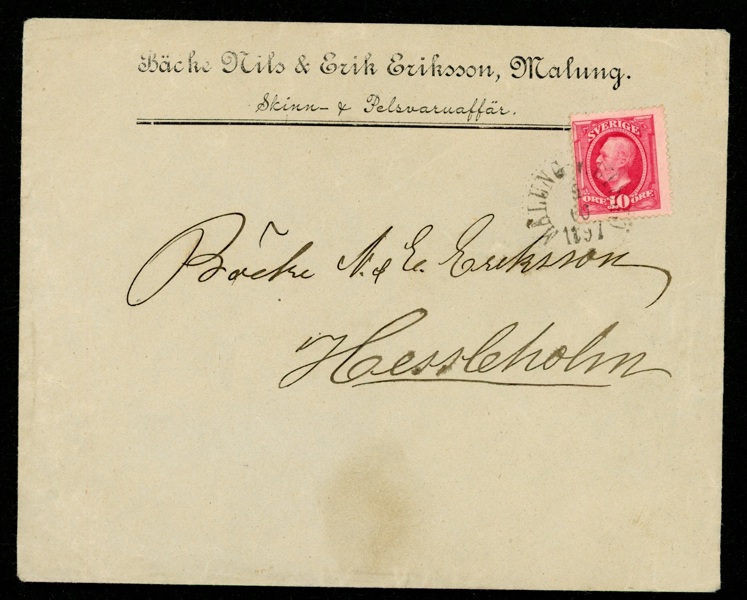 Bäcke Nils & Erik Eriksson, Malung.
Skinn- & Pelsvaruaffär.
SVERIGE
ÖRE 10 ÖRE
MALUNG
1897
Bäcke N. & E. Eriksson
Hessleholm